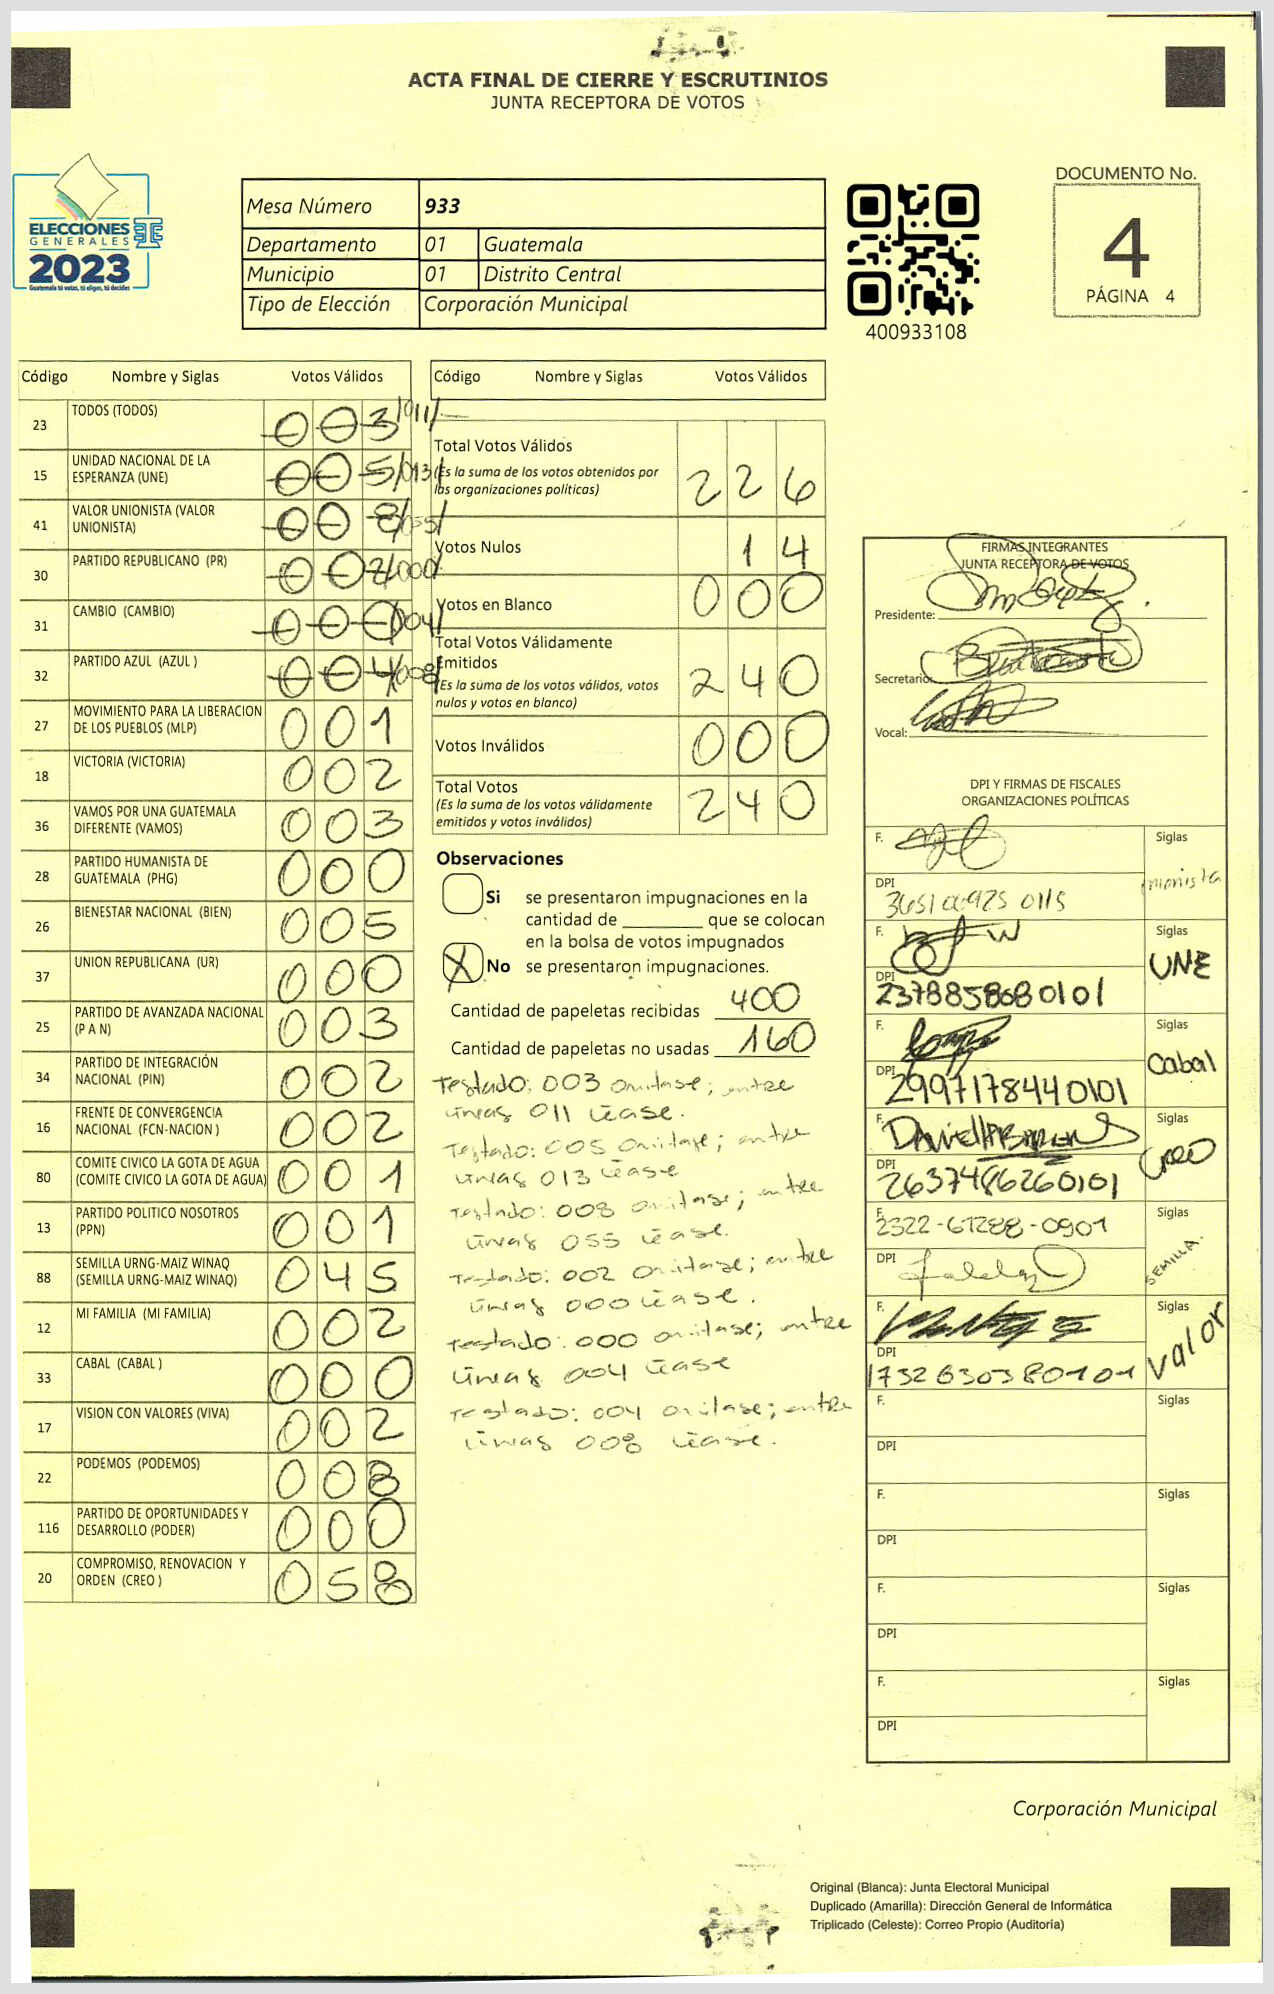 ACTA FINAL DE CIERRE Y ESCRUTINIOS
JUNTA RECEPTORA DE VOTOS
ELECCIONES
GENERALES
2023
Guatemala tú votas, tú eliges, tú decides
Mesa Número 933
Departamento 01 Guatemala
Municipio 01 Distrito Central
Tipo de Elección Corporación Municipal
400933108
DOCUMENTO No.
4
PÁGINA 4
Código Nombre y Siglas Votos Válidos
23 TODOS (TODOS) 003/011/
15 UNIDAD NACIONAL DE LA ESPERANZA (UNE) 005/013/
41 VALOR UNIONISTA (VALOR UNIONISTA) 008/055/
30 PARTIDO REPUBLICANO (PR) 002/000/
31 CAMBIO (CAMBIO) 000/004/
32 PARTIDO AZUL (AZUL ) 004/008/
27 MOVIMIENTO PARA LA LIBERACION DE LOS PUEBLOS (MLP) 001
18 VICTORIA (VICTORIA) 002
36 VAMOS POR UNA GUATEMALA DIFERENTE (VAMOS) 003
28 PARTIDO HUMANISTA DE GUATEMALA (PHG) 000
26 BIENESTAR NACIONAL (BIEN) 005
37 UNION REPUBLICANA (UR) 000
25 PARTIDO DE AVANZADA NACIONAL (P A N) 003
34 PARTIDO DE INTEGRACIÓN NACIONAL (PIN) 002
16 FRENTE DE CONVERGENCIA NACIONAL (FCN-NACION ) 002
80 COMITE CIVICO LA GOTA DE AGUA (COMITE CIVICO LA GOTA DE AGUA) 001
13 PARTIDO POLITICO NOSOTROS (PPN) 001
88 SEMILLA URNG-MAIZ WINAQ (SEMILLA URNG-MAIZ WINAQ) 045
12 MI FAMILIA (MI FAMILIA) 002
33 CABAL (CABAL ) 000
17 VISION CON VALORES (VIVA) 002
22 PODEMOS (PODEMOS) 008
116 PARTIDO DE OPORTUNIDADES Y DESARROLLO (PODER) 000
20 COMPROMISO, RENOVACION Y ORDEN (CREO ) 058
Código Nombre y Siglas Votos Válidos
Total Votos Válidos 226
(Es la suma de los votos obtenidos por
las organizaciones políticas)
Votos Nulos 14
Votos en Blanco 000
Total Votos Válidamente
Emitidos 240
(Es la suma de los votos válidos, votos
nulos y votos en blanco)
Votos Inválidos 000
Total Votos 240
(Es la suma de los votos válidamente
emitidos y votos inválidos)
Observaciones
Si se presentaron impugnaciones en la
cantidad de ________ que se colocan
en la bolsa de votos impugnados
X No se presentaron impugnaciones.
Cantidad de papeletas recibidas 400
Cantidad de papeletas no usadas 160
Testado: 003 omitase; entre
lineas 011 léase.
Testado: 005 omitase; entre
lineas 013 léase
Testado: 008 omitase; entre
lineas 055 léase.
Testado: 002 omitase; entre
lineas 000 léase.
Testado: 000 omitase; entre
lineas 004 léase
Testado: 004 omitase; entre
lineas 008 léase.
FIRMAS INTEGRANTES
JUNTA RECEPTORA DE VOTOS
Presidente:
Secretario:
Vocal:
DPI Y FIRMAS DE FISCALES
ORGANIZACIONES POLÍTICAS
F. Siglas
unionista
DPI
F. Siglas
UNE
DPI
2378858680101
F. Siglas
Cabal
DPI
2997178440101
F. Siglas
CREO
DPI
2637486260101
F. Siglas
2322-61288-0901
SEMILLA.
DPI
F. Siglas
Valor
DPI
1732630380101
F. Siglas
DPI
F. Siglas
DPI
F. Siglas
DPI
F. Siglas
DPI
Corporación Municipal
Original (Blanca): Junta Electoral Municipal
Duplicado (Amarilla): Dirección General de Informática
Triplicado (Celeste): Correo Propio (Auditoría)